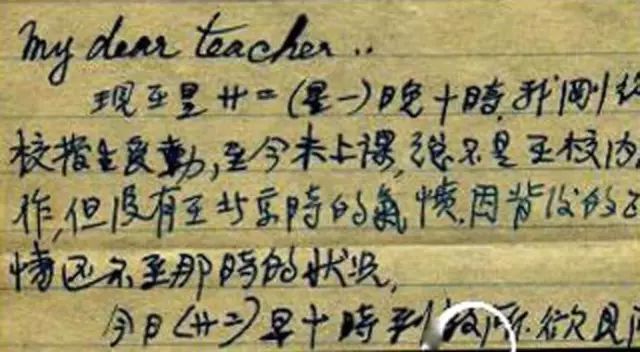 My dear teacher..
现在是廿二(星一)晚十時,我剛
校指生良勤,至今未上課,總不是在校内
作,但沒有在北京時的氣憤,因背後的
情还不至那時的狀况,
今日(廿二)早十時到 欲見